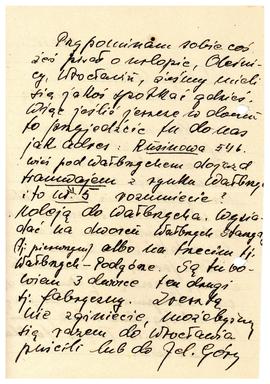 Przypominam sobie coś
żeś pisał o urlopie, Oleśni-
cy, Wrocławiu, żeśmy mieli
się jakoś spotkać gdzieś.
Więc jeśli jeszcze w domu
to przyjedźcie tu do nas
jak adres: Rusinowa 54b.
wieś pod Wałbrzychem dojazd
tramwajem z rynku Wałbrzy-
i to nr 5 rozumiecie?
Koleją do Wałbrzycha. Wysia-
dać na dworcu Wałbrzych
(tj. pierwszym) albo na trzecim tj.
Wałbrzych-Podgórze. Są tu bo-
wiem 3 dworce ten drugi
tj. fabryczny. Zresztą
nie zginiecie, możebyśmy
się razem do Wrocławia
puścili lub do Jel. Góry